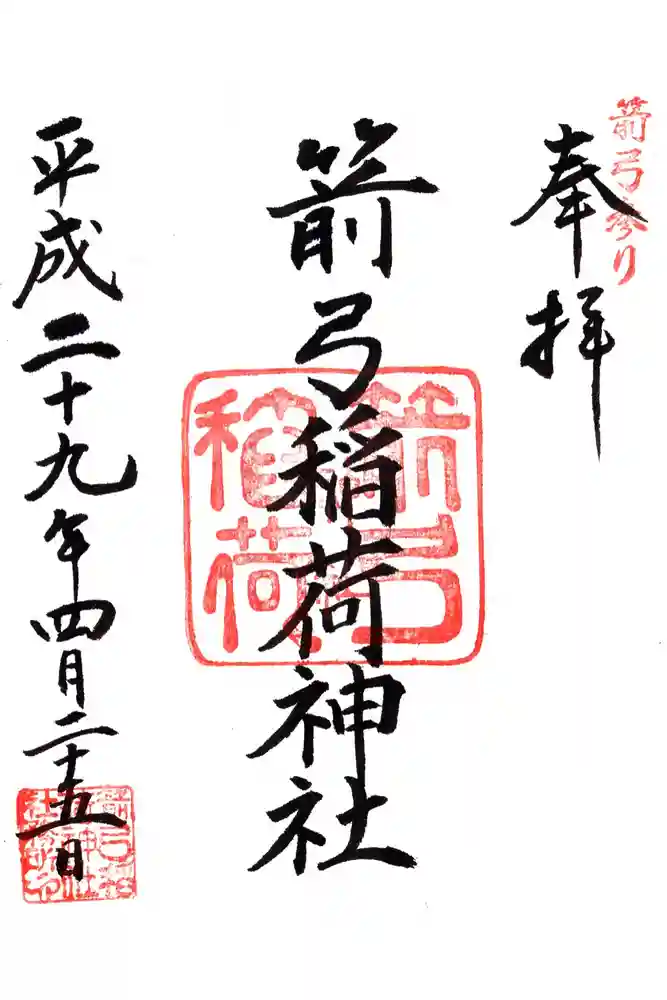 箭弓参り
奉拝
箭弓稲荷神社
箭弓稲荷
平成二十九年四月二十五日